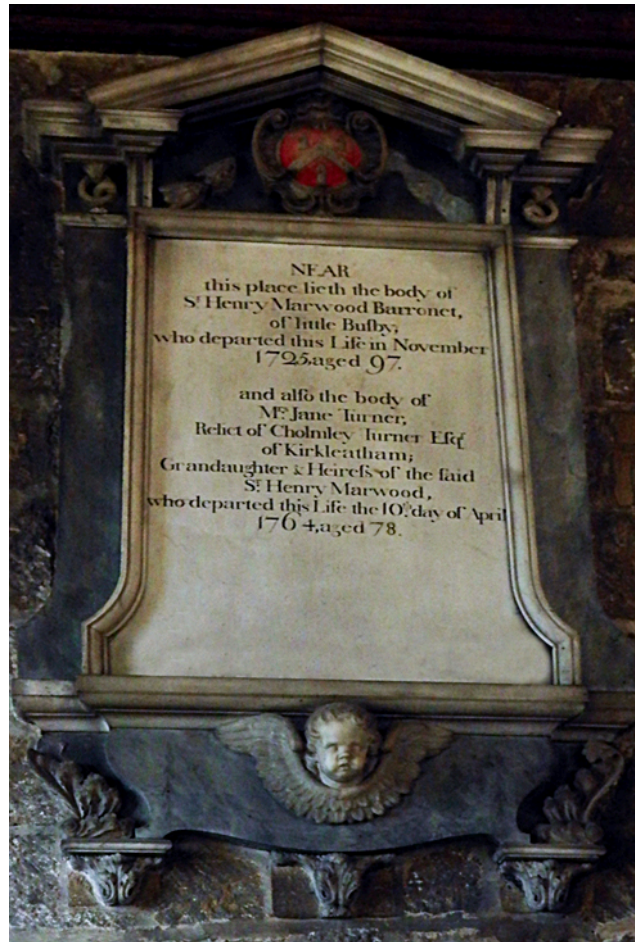 NEAR
this place lieth the body of
Sr. Henry Marwood Barronet,
of little Buſby,
who departed this Life in November
1725, aged 97.
and alſo the body of
Mrs. Jane Turner,
Relict of Cholmley Turner Eſqr.
of Kirkleatham;
Grandaughter & Heireſs of the ſaid
Sr. Henry Marwood,
who departed this Life the 10th. day of April
1764, aged 78.